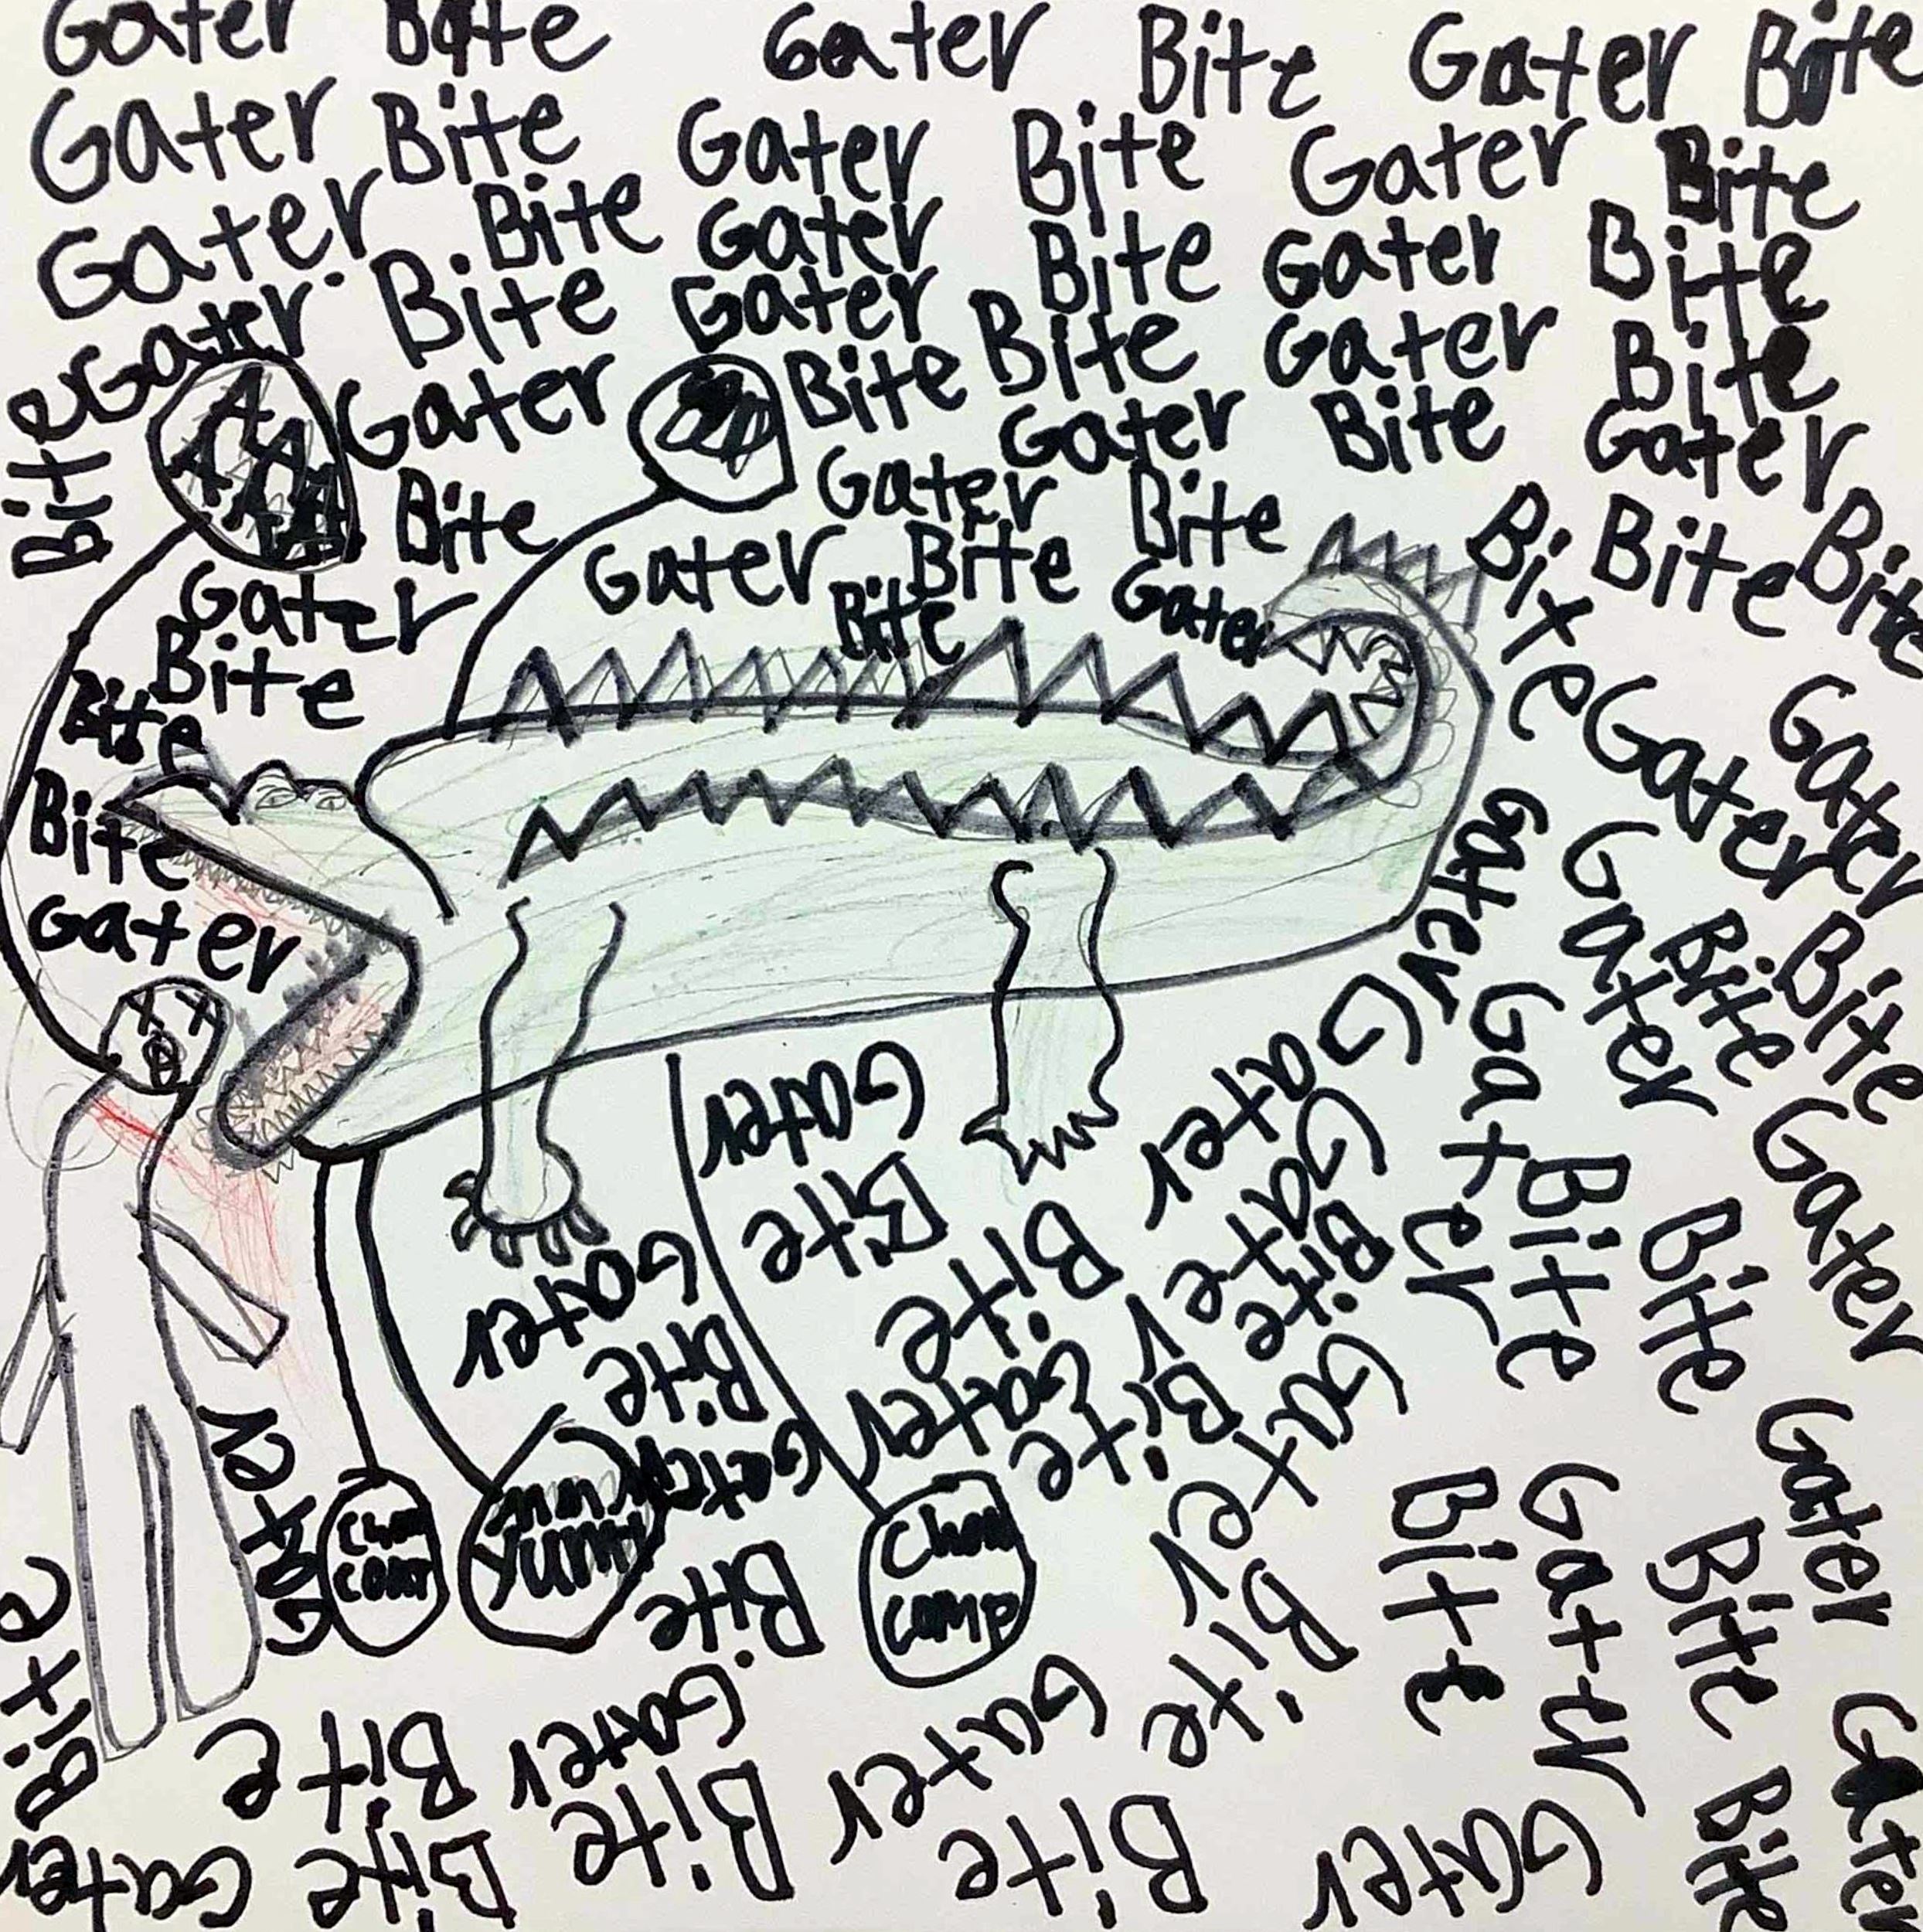 Gater Bite Gater Bite Gater Bite
Gater Bite Gater Bite Gater Bite
Gater Bite Gater Bite Gater Bite
Gater Bite Gater Bite Gater Bite
Bite Gater Bite Gater Bite Gater
Bite Gater Bite Bite Bite Bite
Gater Bite Gater
Gater Bite
Bite Gater Gater
Bite
Bite
Gater
Gater Gater Bite Bite
Gater Gater Gater
Gater Bite Bite Gater
Bite Bite Gate Bite Bite
Gater Bite
Bite Gater Gater Bite Gater
Gater
Gater Chom
comp
YUM
Bite Bite Gater Bite Gater
Bite Bite Gater Gater Bite Gater
Gater Bite Bite Bite Gater Bite